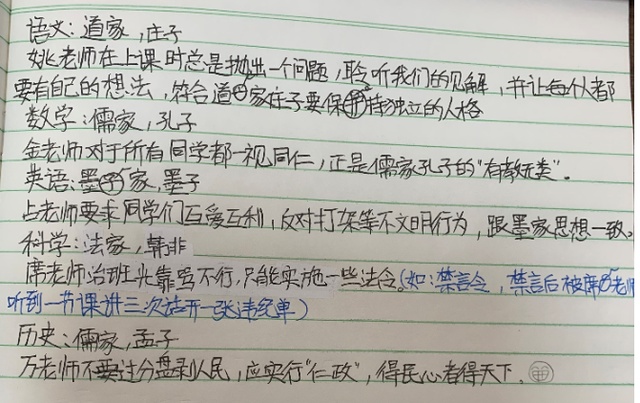 语文:道家,庄子
姚老师在上课时总是抛出一个问题,聆听我们的见解,并让每个人都
要有自己的想法,符合道家庄子要保持独立的人格
数学:儒家,孔子
金老师对于所有同学都一视同仁,正是儒家孔子的“有教无类”。
英语:墨家,墨子
占老师要求同学们互爱互利,反对打架等不文明行为,跟墨家思想一致。
科学:法家,韩非
席老师治班光靠骂不行,只能实施一些法令。(如:禁言令,禁言后被席老师
听到一节课讲三次话开一张违纪单)
历史:儒家,孟子
万老师不要过分盘剥人民,应实行“仁政”,得民心者得天下.